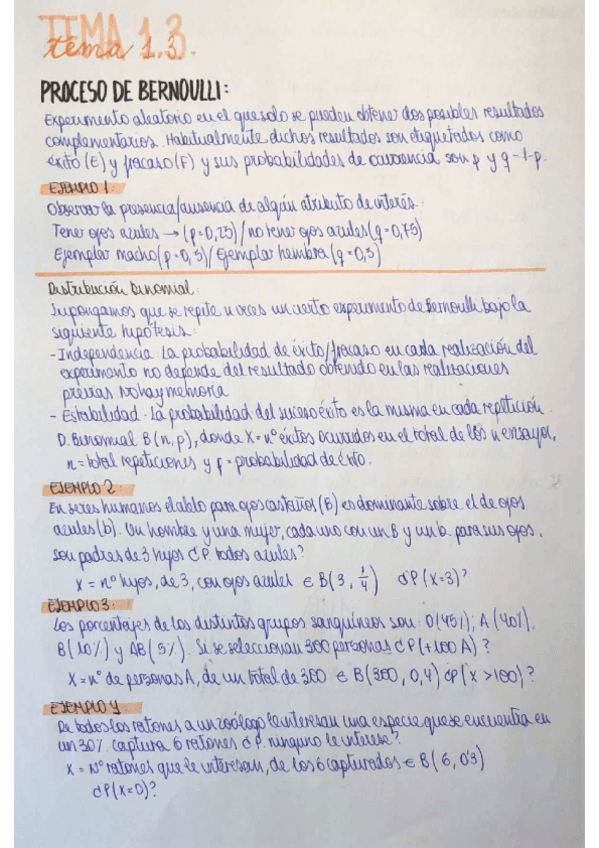 TEMA 1.3.
tema 1.3.
PROCESO DE BERNOULLI:
Experimento aleatorio en el que solo se pueden obtener dos posibles resultados
complementarios. Habitualmente dichos resultados son etiquetados como
éxito (E) y fracaso (F) y sus probabilidades de ocurrencia son p y q = 1-p.
EJEMPLO 1:
Observar la presencia/ausencia de algún atributo de interés.
Tener ojos azules → (p=0,25)/no tener ojos azules (q=0,75)
Ejemplar macho (p=0,5)/Ejemplar hembra (q=0,5)
Distribución Binomial:
Supongamos que se repite n veces un cierto experimento de Bernoulli bajo la
siguiente hipótesis:
- Independencia: La probabilidad de éxito/fracaso en cada realización del
experimento no depende del resultado obtenido en las realizaciones
previas. No hay memoria
- Estabilidad: La probabilidad del suceso éxito es la misma en cada repetición.
D. Binomial B(n,p), donde X = nº éxitos ocurridos en el total de los n ensayos,
n = total repeticiones y p = probabilidad de éxito.
EJEMPLO 2:
En seres humanos el alelo para ojos castaños (B) es dominante sobre el de ojos
azules (b). Un hombre y una mujer, cada uno con un B y un b. para sus ojos,
son padres de 3 hijos ¿P todos azules?
X = nº hijos, de 3, con ojos azules ∈ B(3, 1/4) ¿P(X=3)?
EJEMPLO 3:
Los porcentajes de los distintos grupos sanguíneos son: O(45%); A(40%),
B(10%) y AB(5%). Si se seleccionan 300 personas ¿P(+100 A)?
X = nº de personas A, de un total de 300 ∈ B(300, 0,4) ¿P(X>100)?
EJEMPLO 4
De todos los ratones a un zoólogo le interesan una especie que se encuentra en
un 30%. captura 6 ratones ¿P. ninguno le interese?
X = Nº ratones que le interesan, de los 6 capturados ∈ B(6, 0'3)
¿P(X=0)?